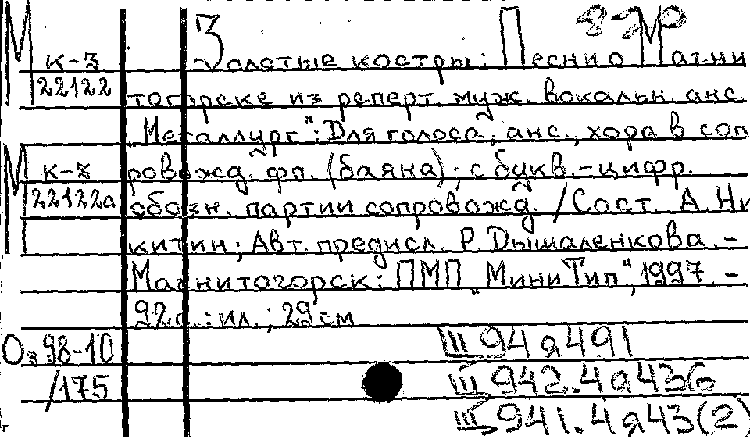 Золотые костры: Песни о Магни
М к-3
22122
тогорске из реперт. муж. вокальн. анс.
"Металлург": Для голоса, анс., хора в соп
М к-3
22122а
ровожд. фп. (баяна); с букв.-цифр.
обозн. партии сопровожд. / Сост. А. Ни
китин; Авт. предисл. Р. Дышаленкова. –
Магнитогорск: ПМП "МиниТип", 1997. –
92 с.: ил.; 29 см
О. 98-10
/175
Ш 94 я 491
Ш 942.4 я 436
Ш 941.4 я 43(2)